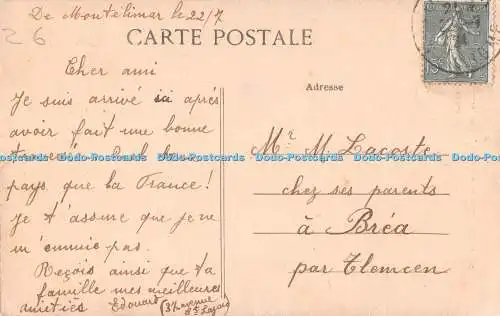 De Montélimar le 22/7
26
CARTE POSTALE
Cher ami
Je suis arrivé ici après
avoir fait une bonne
traversée. Quel beau
pays que la France!
Je t'assure que je ne
m'ennuie pas.
Reçois ainsi que ta
famille mes meilleures
amitiés Edouard (37 avenue
St Lazare)
Adresse
Mr M. Lacoste
chez ses parents
à Bréa
par Tlemcen
Postcards Dodo-Postcards Dodo-Postcards Dodo-Postcards Dodo-Postcards Dodo-Postcards